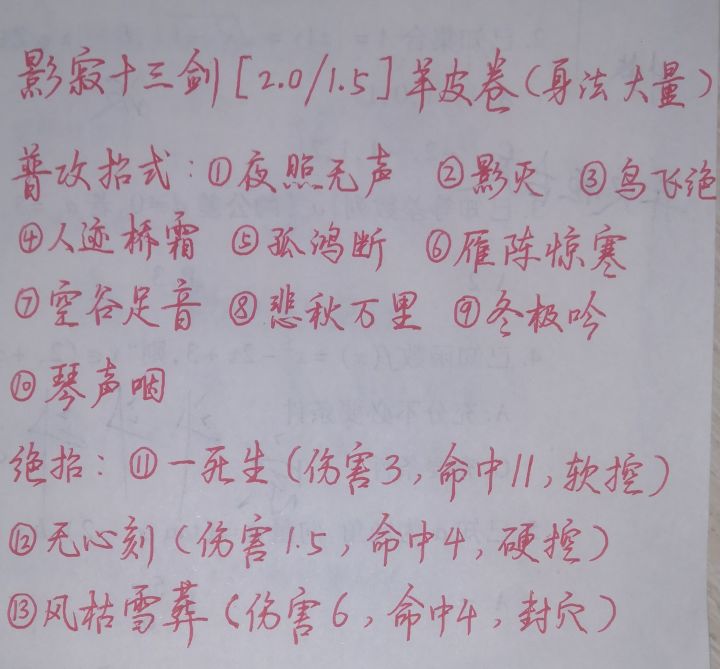 影寂十三剑[2.0/1.5]羊皮卷(身法大量)
普攻招式:①夜照无声 ②影灭 ③鸟飞绝
④人迹桥霜 ⑤孤鸿断 ⑥雁阵惊寒
⑦空谷足音 ⑧悲秋万里 ⑨冬极吟
⑩琴声咽
绝招:⑪一死生(伤害3,命中11,软控)
⑫无心刻(伤害1.5,命中4,硬控)
⑬风枯雪葬(伤害6,命中4,封穴)